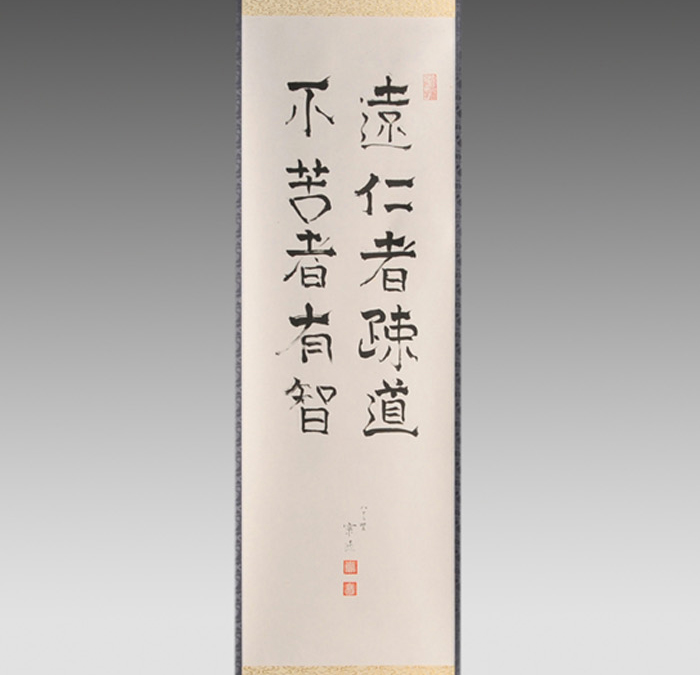 遠仁者疎道
不苦者有智